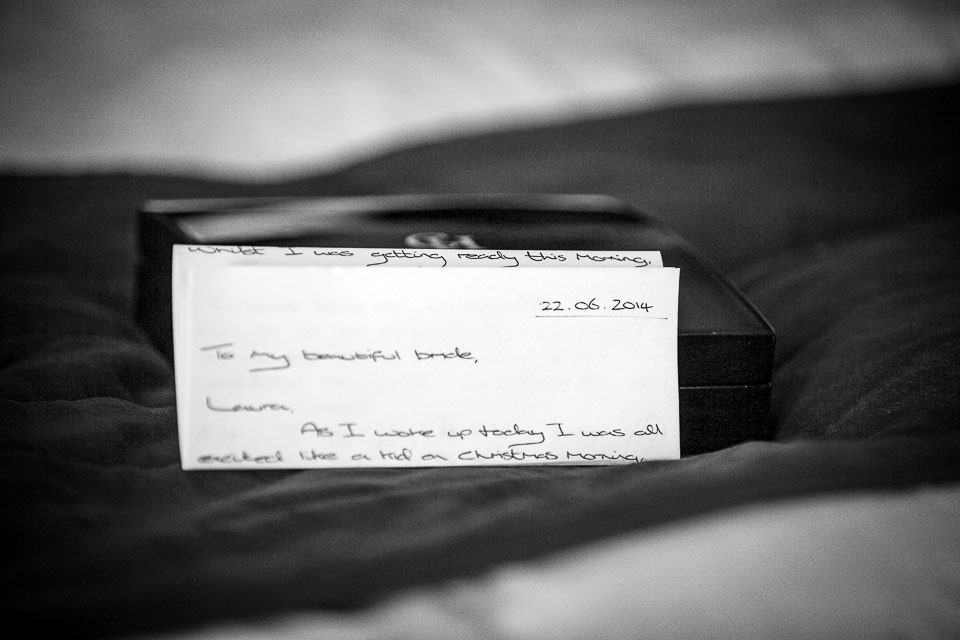 Whilst I was getting ready this Morning,
22.06.2014
To my beautiful bride,
Laura,
As I woke up today I was all
excited like a kid on Christmas Morning,